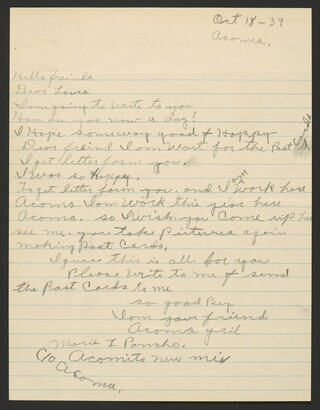 Oct 18-39
Acoma,
Hello freinds
Dear Lana
I am going to write to you
How are you now a day?
I Hope someway good & Happy
Dear freind I am wait for the Past Cards
I get letter form you.
I was so Happy,
To get letter form you. and I am Work here
Acoma I am Work this year here
Acoma. so I wish you Come up here
see me. you take Pictures again
making Post Cards,
I guess this is all for you
Please Write to me & send
the Post Cards to me
so good Bey
I am your friend
Acoma gril
Marie L Poncho.
C/o Acomita new mix
Acoma.